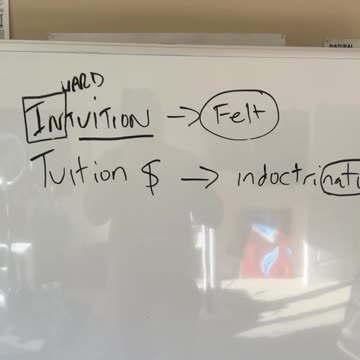 NATURAL
WARD
INTUITION → Felt
Tuition $ → indoctrinati